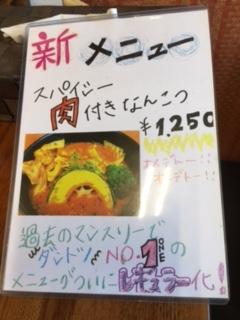 新メニュー
スパイシー
肉付きなんこつ
¥1,250
おめでトー!!
オーデトー!!
過去のマンスリーで
ダントツ NO.1 ONE の
メニューがついにレギュラー化!